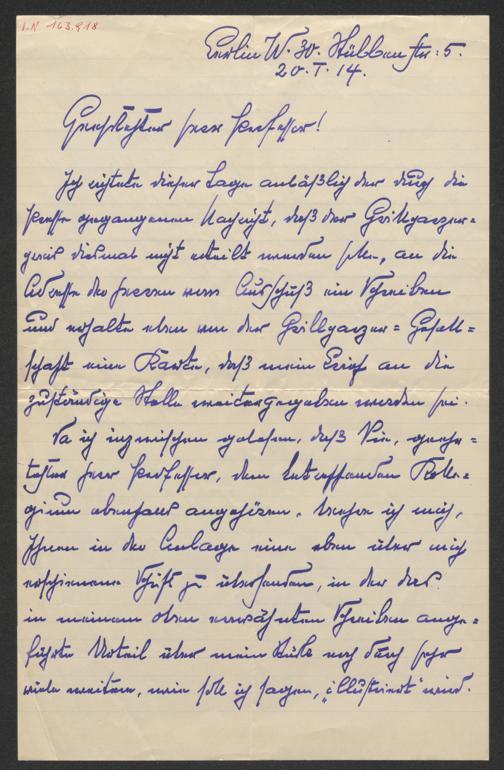 I.N. 163.918
Berlin W. 30. Stübbenstr: 5.
20. I. 14.
Geehrtester Herr Professor!
Ich richtete dieser Tage anläßlich der durch die
Presse gegangenen Nachricht, daß der Grillparzer-
preis diesmal nicht erteilt werden solle, an die
Adresse des Herren vom Ausschuß ein Schreiben
und erhalte eben von der Grillparzer-Gesell-
schaft eine Karte, daß mein Brief an die
zuständige Stelle weitergegeben worden sei.
Da ich inzwischen gelesen, daß Sie, geehr-
tester Herr Professor, dem betreffenden Kolle-
gium ebenfalls angehören, beehre ich mich,
Ihnen in der Anlage eine eben über mich
erschienene Schrift zu übersenden, in der das
in meinem oben erwähnten Schreiben ange-
führte Urteil über mein Stück noch durch sehr
viele weitere, wie soll ich sagen, „illustriert" wird.